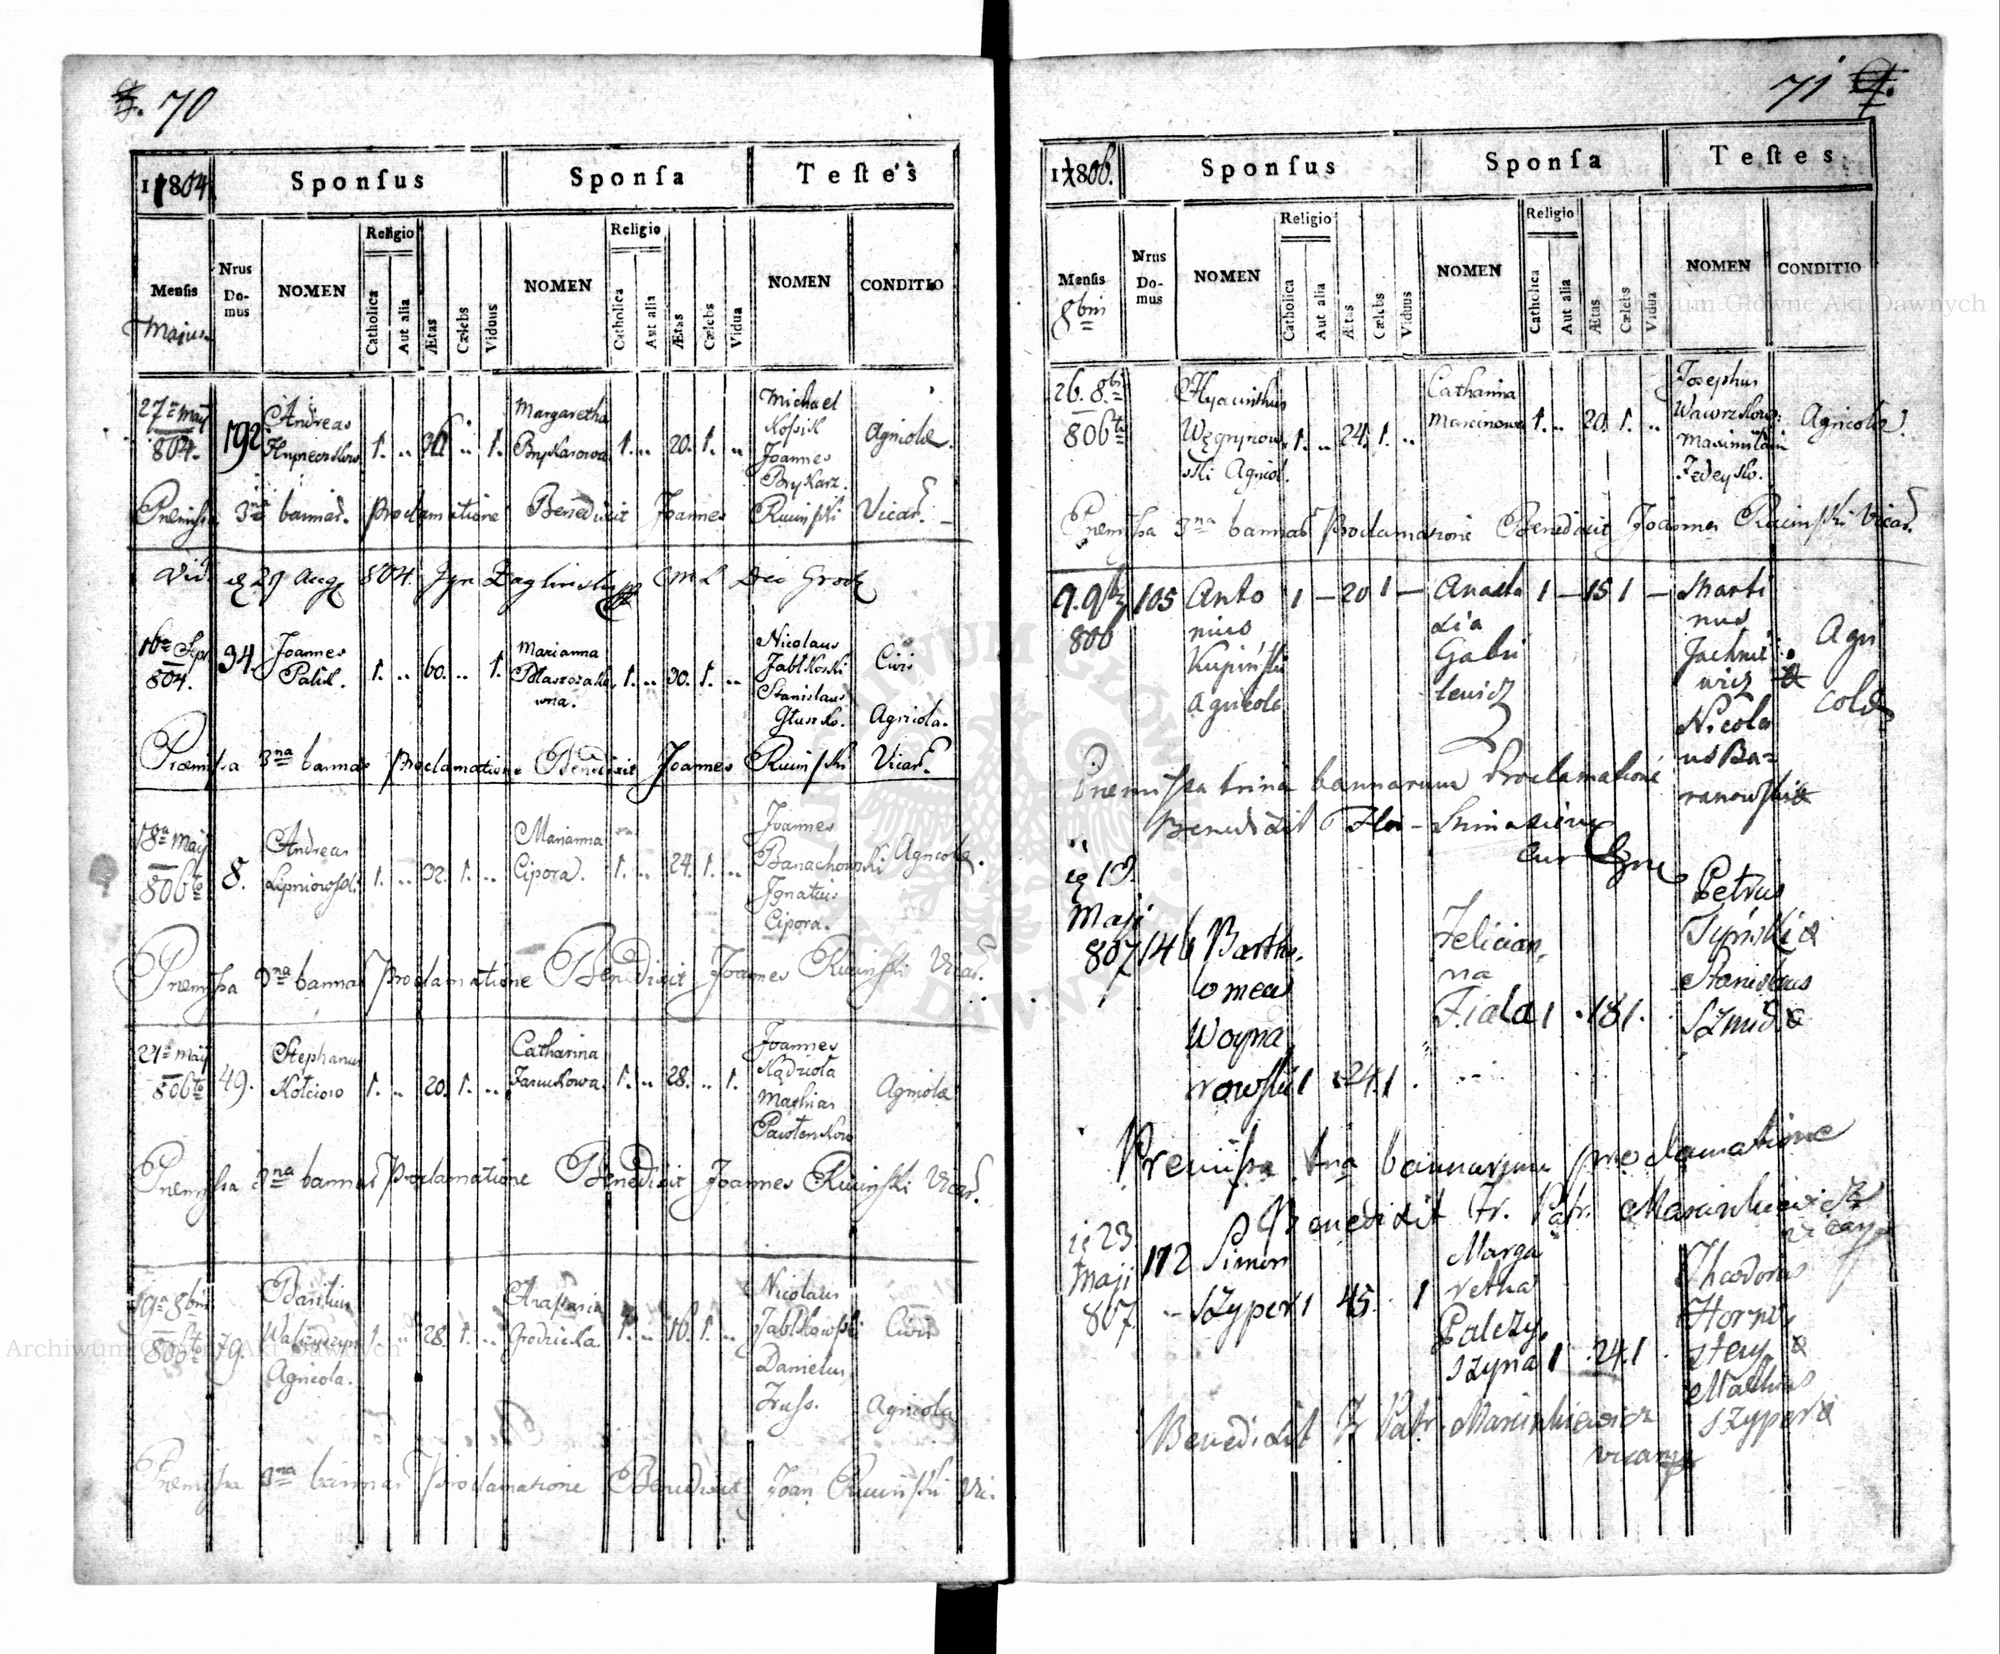 70
1804
Sponſus
Sponſa
Teſtes
Menſis
Majus
Nrus
Do-
mus
NOMEN
Religio
Catholica
Aut alia
Ætas
Cælebs
Viduus
NOMEN
Religio
Catholica
Aut alia
Ætas
Cælebs
Vidua
NOMEN
CONDITIO
27 May 804.
192
Andreas
1. .. 36 .. 1.
Margaretha
1. .. 20. 1. ..
Michael
Kosik
Joannes
Brykarz.
Agricolæ.
Præmissa 3na bannar. Proclamatione Benedixit Joannes Ruciński Vicar.
Vid. 29 Aug 804.
16 Sep. 804.
34.
Joannes
Palik.
1. .. 60. .. 1.
Marianna
1. .. 30. 1. ..
Nicolaus
Jabłkoski
Stanislaus
Głuszko.
Civis
Agricola.
Præmissa 3na bannar Proclamatione Benedixit Joannes Ruciński Vicar.
18a May
806te
8.
Andreas
Lipniowski.
1. .. 32. 1. ..
Marianna
Cipora.
1. .. 24. 1. ..
Joannes
Banachowski
Ignatius
Cipora.
Agricolæ.
Præmissa 3na bannar Proclamatione Benedixit Joannes Ruciński Vicar.
21a May
806te
49.
Stephanus
Kotciow
1. .. 20. 1. ..
Catharina
1. .. 28. .. 1.
Joannes
Kądziola
Mathias
Agricolæ
Præmissa 3na bannar Proclamatione Benedixit Joannes Ruciński Vicar.
19a 8bris
806te
79.
Basilius
Agricola.
1. .. 28. 1. ..
Anastasia
1. .. 16. 1. ..
Nicolaus
Jabłkowski
Daniel
Civis
Agricola
Præmissa 3na bannar Proclamatione Benedixit Joan Ruciński Vic.
71
1806.
Sponſus
Sponſa
Teſtes
Menſis
8bris
Nrus
Do-
mus
NOMEN
Religio
Catholica
Aut alia
Ætas
Cælebs
Viduus
NOMEN
Religio
Catholica
Aut alia
Ætas
Cælebs
Vidua
NOMEN
CONDITIO
26. 8bris
806te
Hyacinthus
Węgrynow-
ski Agricol.
1. .. 24. 1. ..
Catharina
Marcinowa
1. .. 20. 1. ..
Josephus
Maximilian
Agricolæ.
Præmissa 3na bannar Proclamatione Benedixit Joannes Ruciński Vicar.
9. 9b
806
105
Anto
nius
Kupiński
Agricola
1 — 20 1 —
Anasta
sia
Gabri
lewicz
1 — 15 1 —
Marti
nus
Jachni
wicz &
Nicola
us Ba-
ranowski
Agri
colæ
Præmissa trina bannarum Proclamatione
Benedixit
13
Maji
807
146
Bartho-
lomeus
Woyna
rowski
1 . 24. 1 .
Felician
na
Fiala
1 . 18 1.
Petrus
Tyński &
Stanislaus
Szmid
Premissa tna bannarum proclamatione
Benedixit Fr. Patr. Marcinkiewicz
23
Maji
807
112
Simon
Szyper
1 45 . 1
Marga
retha
Palczy
szyna
1 . 24. 1 .
Theodorus
&
Mathias
Szyper
Benedixit Fr Patr. Marcinkiewicz
Archiwum Główne Akt Dawnych